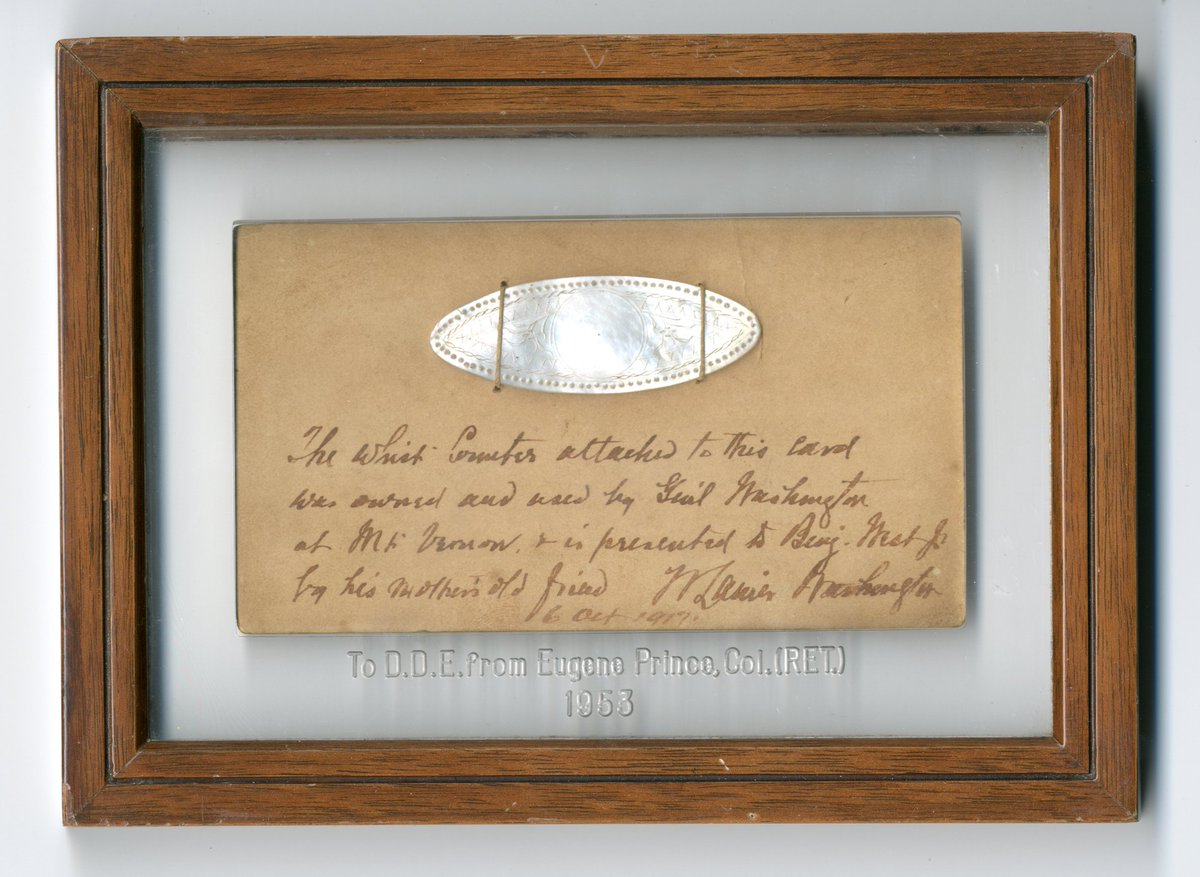 The whist Counter attached to this card
was owned and used by Gen'l Washington
at Mt Vernon, & is presented to Benj. West Jr
by his mother's old friend W Lanier Washington
6 Oct 1917.
To D.D.E. from Eugene Prince, Col. (RET.)
1953